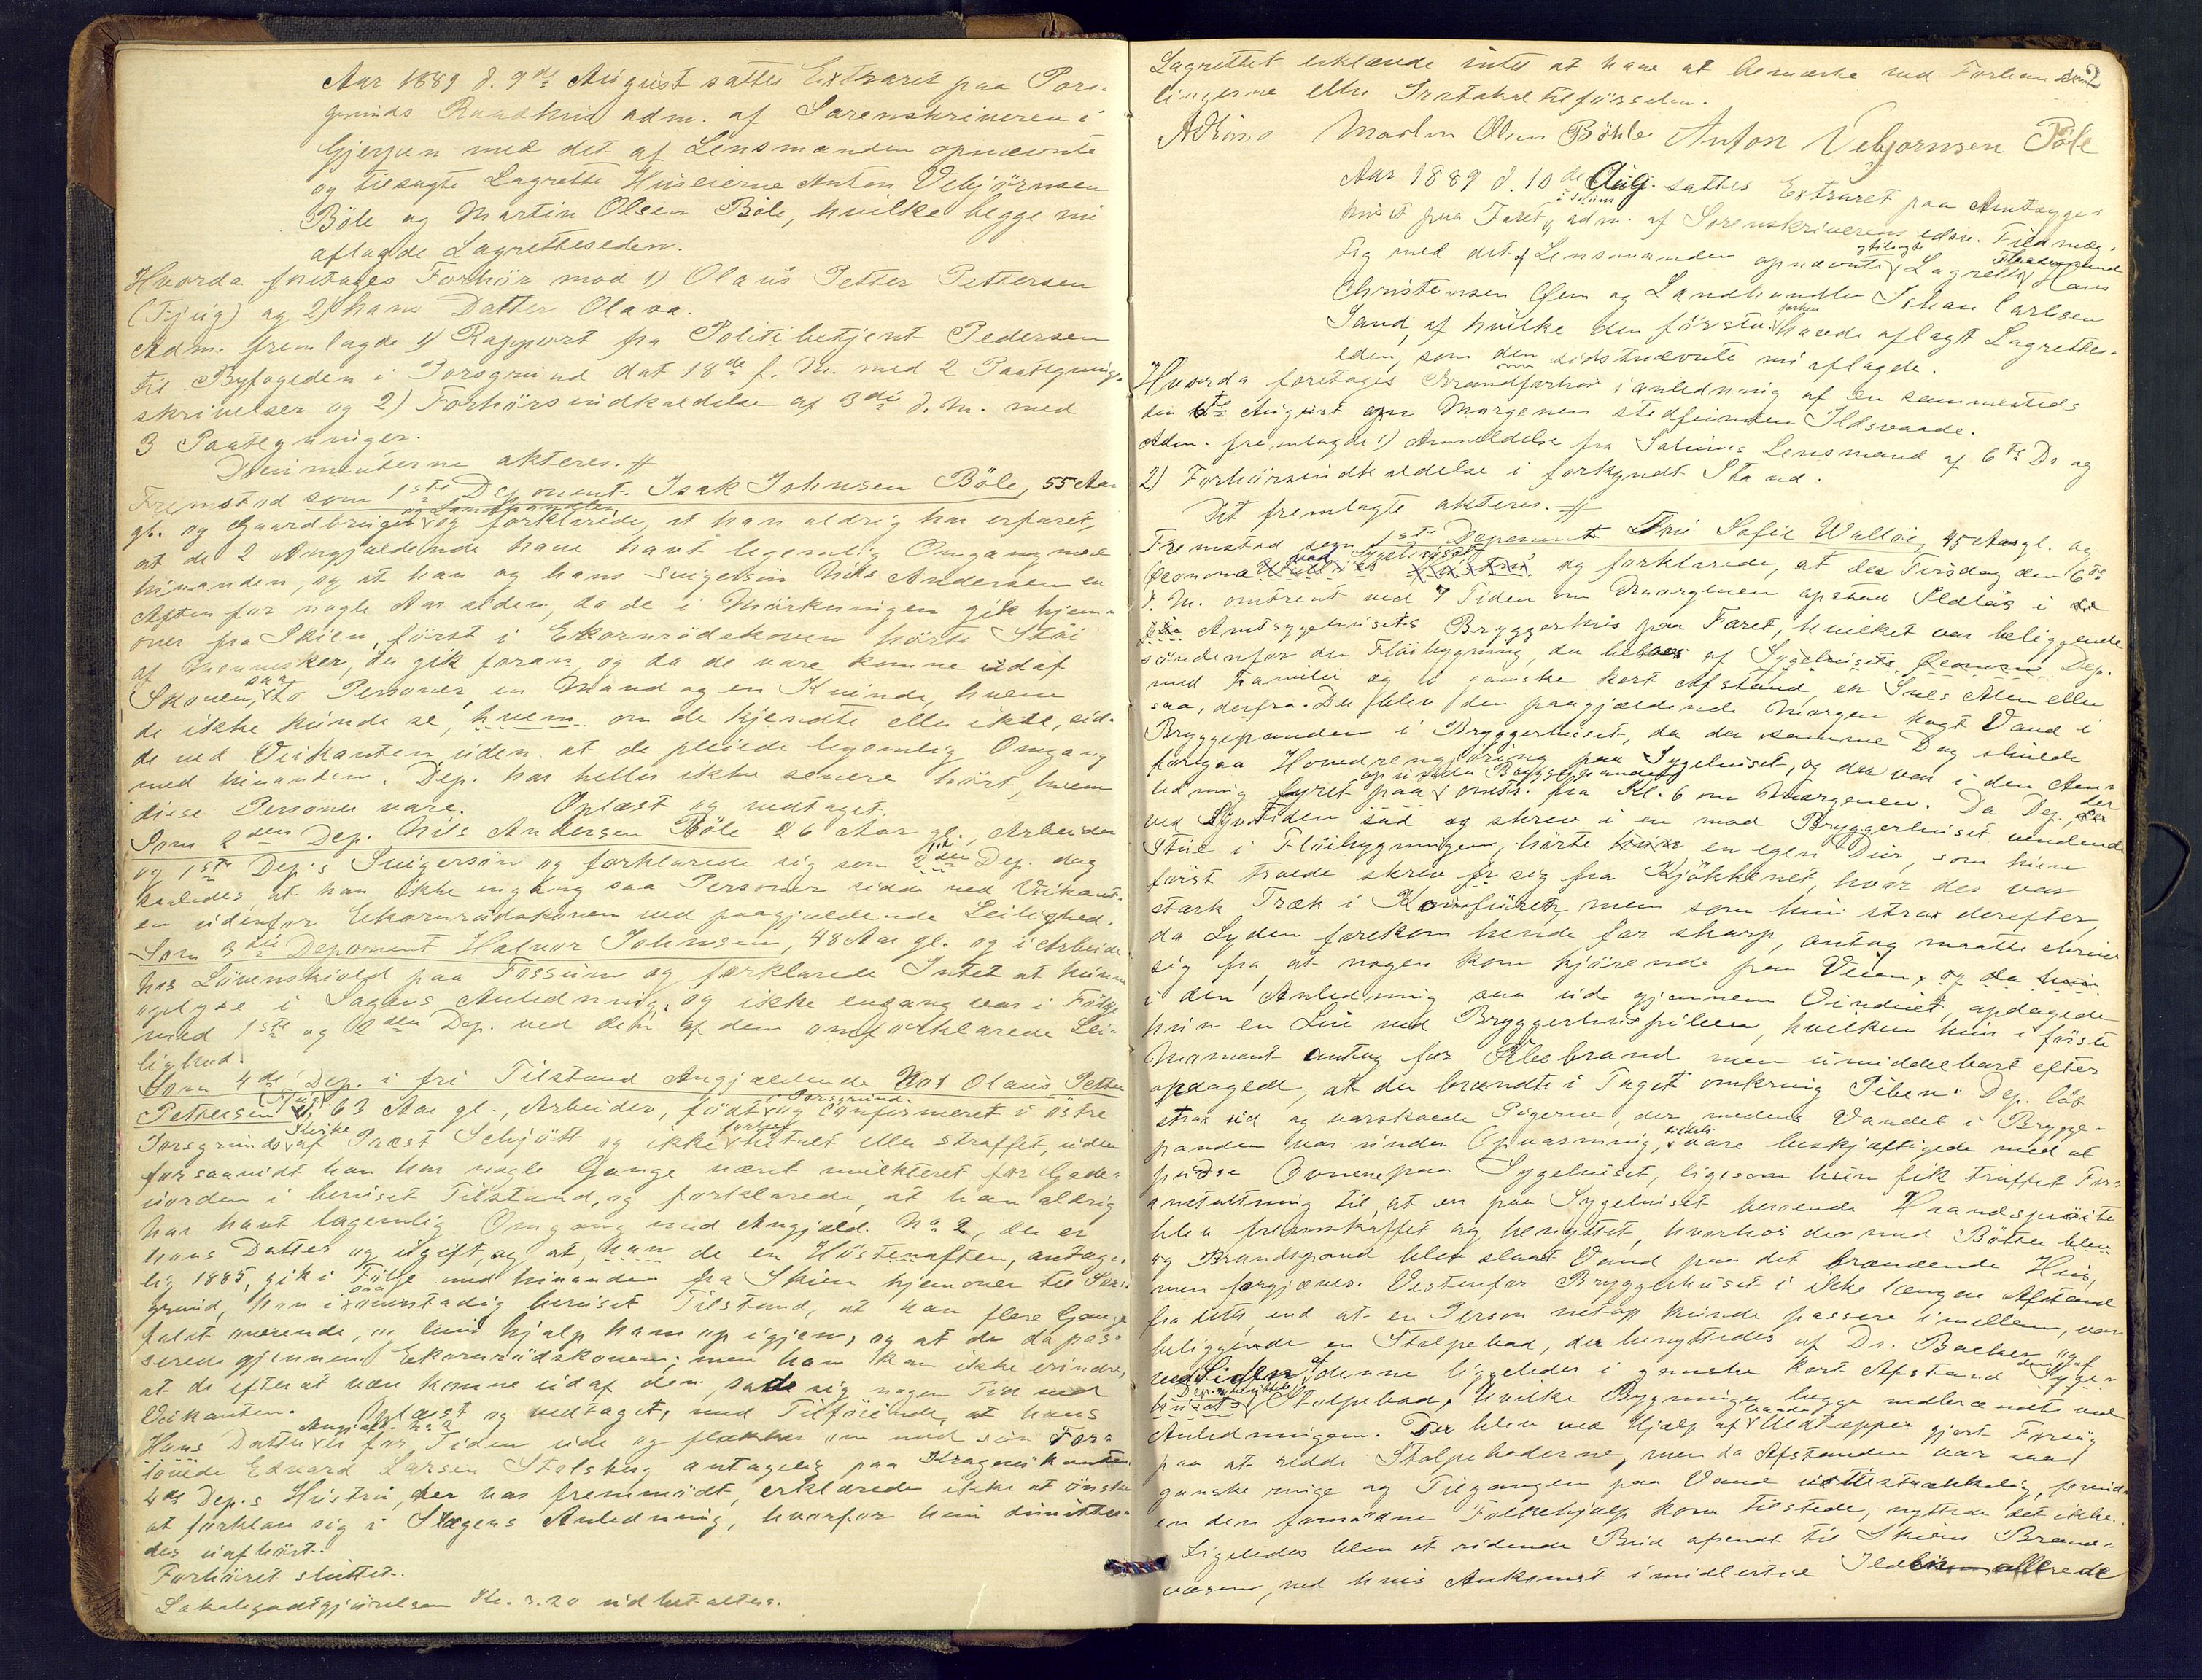 Aar 1889 d. 9de August sattes Extraret paa Pors-
grunds Raadhus adm. af Sorenskriveren i
Gjerpen med det af Lensmanden opnævnte
og tilsagte Lagrette Huseierne Anton Vebjörnsen
Böle og Martin Olsen Böle, hvilke begge nu
aflagde Lagretteseden.
Hvorda foretages Forhör mod 1) Olaus Petter Pettersen
(Fjug) og 2) hans Datter Olava.
Adm. fremlagde 1) Rapport fra Politibetjent Pedersen
til Byfogeden i Porsgrund dat 18de f. M. med 2 Paategnings-
skrivelser og 2) Forhörsindkaldelse af 3die d. M. med
3 Paategninger.
Dokumenterne akteres. #
Fremstod som 1ste Deponent Isak Johnsen Böle, 55 Aar
og Landhandler
gl. og Gaardbruger og forklarede, at han aldrig har erfaret,
at de 2 Angjældende have havt legemlig Omgang med
hinanden, og at han og hans Svigersön Nils Andersen en
Aften for nogle Aar siden, da de i Mörkningen gik hjem-
over fra Skien, først i Ekornrödskoven hörte Stöi
af Mennesker, der gik foran, og da de vare komne ud af
saa
Skoven, to Personer, en Mand og en Kvinde, hvem
de ikke kunde se, hvem om de kjendte eller ikke, sid-
de ved Veikanten uden at de pleiede legemlig Omgang
med hinanden. Dep. har heller ikke senere hört, hvem
disse Personer vare. Oplæst og vedtaget.
Som 2den Dep. Nils Andersen Böle 26 Aar gl., Arbeider
og 1ste Dep's Svigersön og forklarede sig som 1ste Dep. dog
saaledes, at han ikke engang saa Personer sidde ved Veikant-
en udenfor Ekornrödskoven ved paagjældende Leilighed.
Som 3die Deponent Halvor Johnsen, 48 Aar gl. og i Arbeide
hos Lövenskiold paa Fossum og forklarede Intet at kunne
oplyse i Sagens Anledning, og ikke engang var i Fölge
med 1ste og 2den Dep. ved den af dem omforklarede Lei-
lighed.
Som 4de Dep. i fri Tilstand Angjældende No 1 Olaus Petter
(Fjug) Porsgrund
Pettersen 63 Aar gl., Arbeider, födt og confirmeret i östre
Kirke forhen
Porsgrunds af Præst Schjött og ikke tiltalt eller straffet, uden
forsaavidt han har nogle Gange været mulkteret for Gade-
uorden i beruset Tilstand, og forklarede, at han aldrig
har havt legemlig Omgang med Angjæld. No 2, der er
hans Datter og ugift, og at han de en Höstenaften, antage-
lig 1885, gik i Fölge med hinanden fra Skien hjemover til Pors-
saa
grund, han i overstadig beruset Tilstand, at han flere Gange
faldt overende, og hun hjalp ham op igjen, og at de da pas-
serede gjennem Ekornrödskoven; men han kan ikke erindre,
at de efter at være komne ud af den, satte sig nogen Tid ved
Veikanten. Oplæst og vedtaget, med Tilföiende, at hans
Angjæld. No 2
Hans Datter er for Tiden ude og flakker om med sin For-
lovede Edvard Larsen Stolsberg antagelig paa Kragerökanten.
4des Dep.s Hustru, der var fremmödt, erklærede ikke at önske
at forklare sig i Sagens Anledning, hvorfor hun dimitter-
des uafhört.
Forhöret sluttet.
Lokalegodtgjörelsen Kr. 3.20 udbetaltes.
2
Lagrettet erklærede intet at have at bemærke ved Forhand-
lingerne eller Protokoltilförselen.
Martin Olsen Böhle Anton Vebjornsen Böle
Aar 1889 d. 10de Aug. sattes Extraret paa Amtssyge-
i Solum
huset paa Faret, adm. af Sorenskriverens edsv. Fuldmæg-
og tilsagte
tig med det af Lensmanden opnævnte Lagrette Hans
Christensen Øen og Landhandler Johan Carlsen
forhen
Sand, af hvilke den förste havde aflagt Lagrettes-
eden, som den sidstnævnte nu aflagde.
Hvorda foretages Brandforhör i anledning af en sammesteds
den 6te August om Morgenen stedfunden Ildsvaade.
Adm. fremlagde 1) Anmeldelse fra Solums Lensmand af 6te Ds og
2) Forhörsindkaldelse i forkyndt Stand.
Det fremlagte akteres. #
Fremstod som 1ste Deponent Fru Sofie Wallöe, 45 Aar gl. og
ved Sygehuset
Økonoma og forklarede, at der Tirsdag den 6te
d. M. omtrent ved 7 Tiden om Morgenen opstod Ildlös i
Amtssygehusets Bryggerhus paa Faret, hvilket var beliggende
söndenfor den Flöibygning, der beboes af Sygehusets Økonom Dep.
med Familie og i ganske kort Afstand, en Snes Alen eller
saa, derfra. Der blev den paagjældende Morgen kogt Vand i
Bryggepanden i Bryggerhuset, da der samme Dag skulde
foregaa Hovedrengjöring paa Sygehuset, og der var i den An-
op under Bryggepanden
ledning fyret paa omtr. fra Kl. 6 om Morgenen. Da Dep., der
ved Syvtiden sad og skrev i en mod Bryggerhuset vendende
Stue i Flöibygningen, hörte en egen Dur, som hun
först troede skrev sig fra Kjökkenet, hvor der var
stærk Træk i Komfuret, men som hun strax derefter,
da Lyden forekom hende for skarp, antog maatte skrive
sig fra, at nogen kom kjörende paa Veien, og da hun
i den Anledning saa ud gjennem Vinduet, opdagede
hun en Lue ved Bryggerhuspiben, hvilken hun i förste
Moment antog for Pibebrand men umiddelbart efter
opdagede, at der brændte i Taget omkring Piben. Dep. löb
strax ud og varskoede Pigerne, der medens Vandet i Brygge-
panden var under Opvarmning, vare beskjæftigede med at
pudse Ovnene paa Sygehuset, ligesom hun fik truffet For-
anstaltning til, at en paa Sygehuset beroende Haandspröite
blev fremskaffet og benyttet, hvorhos der med Bötter
og Brandspand blev slaaet Vand paa det brændende Hus,
men forgjæves. Vestenfor Bryggerhuset i ikke længere Afstand
fra dette, end at en Person netop kunde passere imellem, var
beliggende en Stolpebod, der benyttedes af Dr. Backer, og af
ved Siden af denne liggeledes i ganske kort Afstand den Syge-
Dep. benyttede
husets Stolpebod, hvilke Bygninger begge nedbrændte ved
vaade
Anledningen. Der blev ved Hjælp af Uldtæpper gjort Forsög
paa at redde Stolpeboderne, men da Afstanden var saa
ganske ringe og Tilgangen paa Vand utilstrækkelig, forind-
en den fornödne Folkehjælp kom tilstede, nyttede det ikke.
Ligeledes blev et ridende Bud afsendt til Skiens Brand-
væsen, ved hvis Ankomst imidlertid Ilden allerede